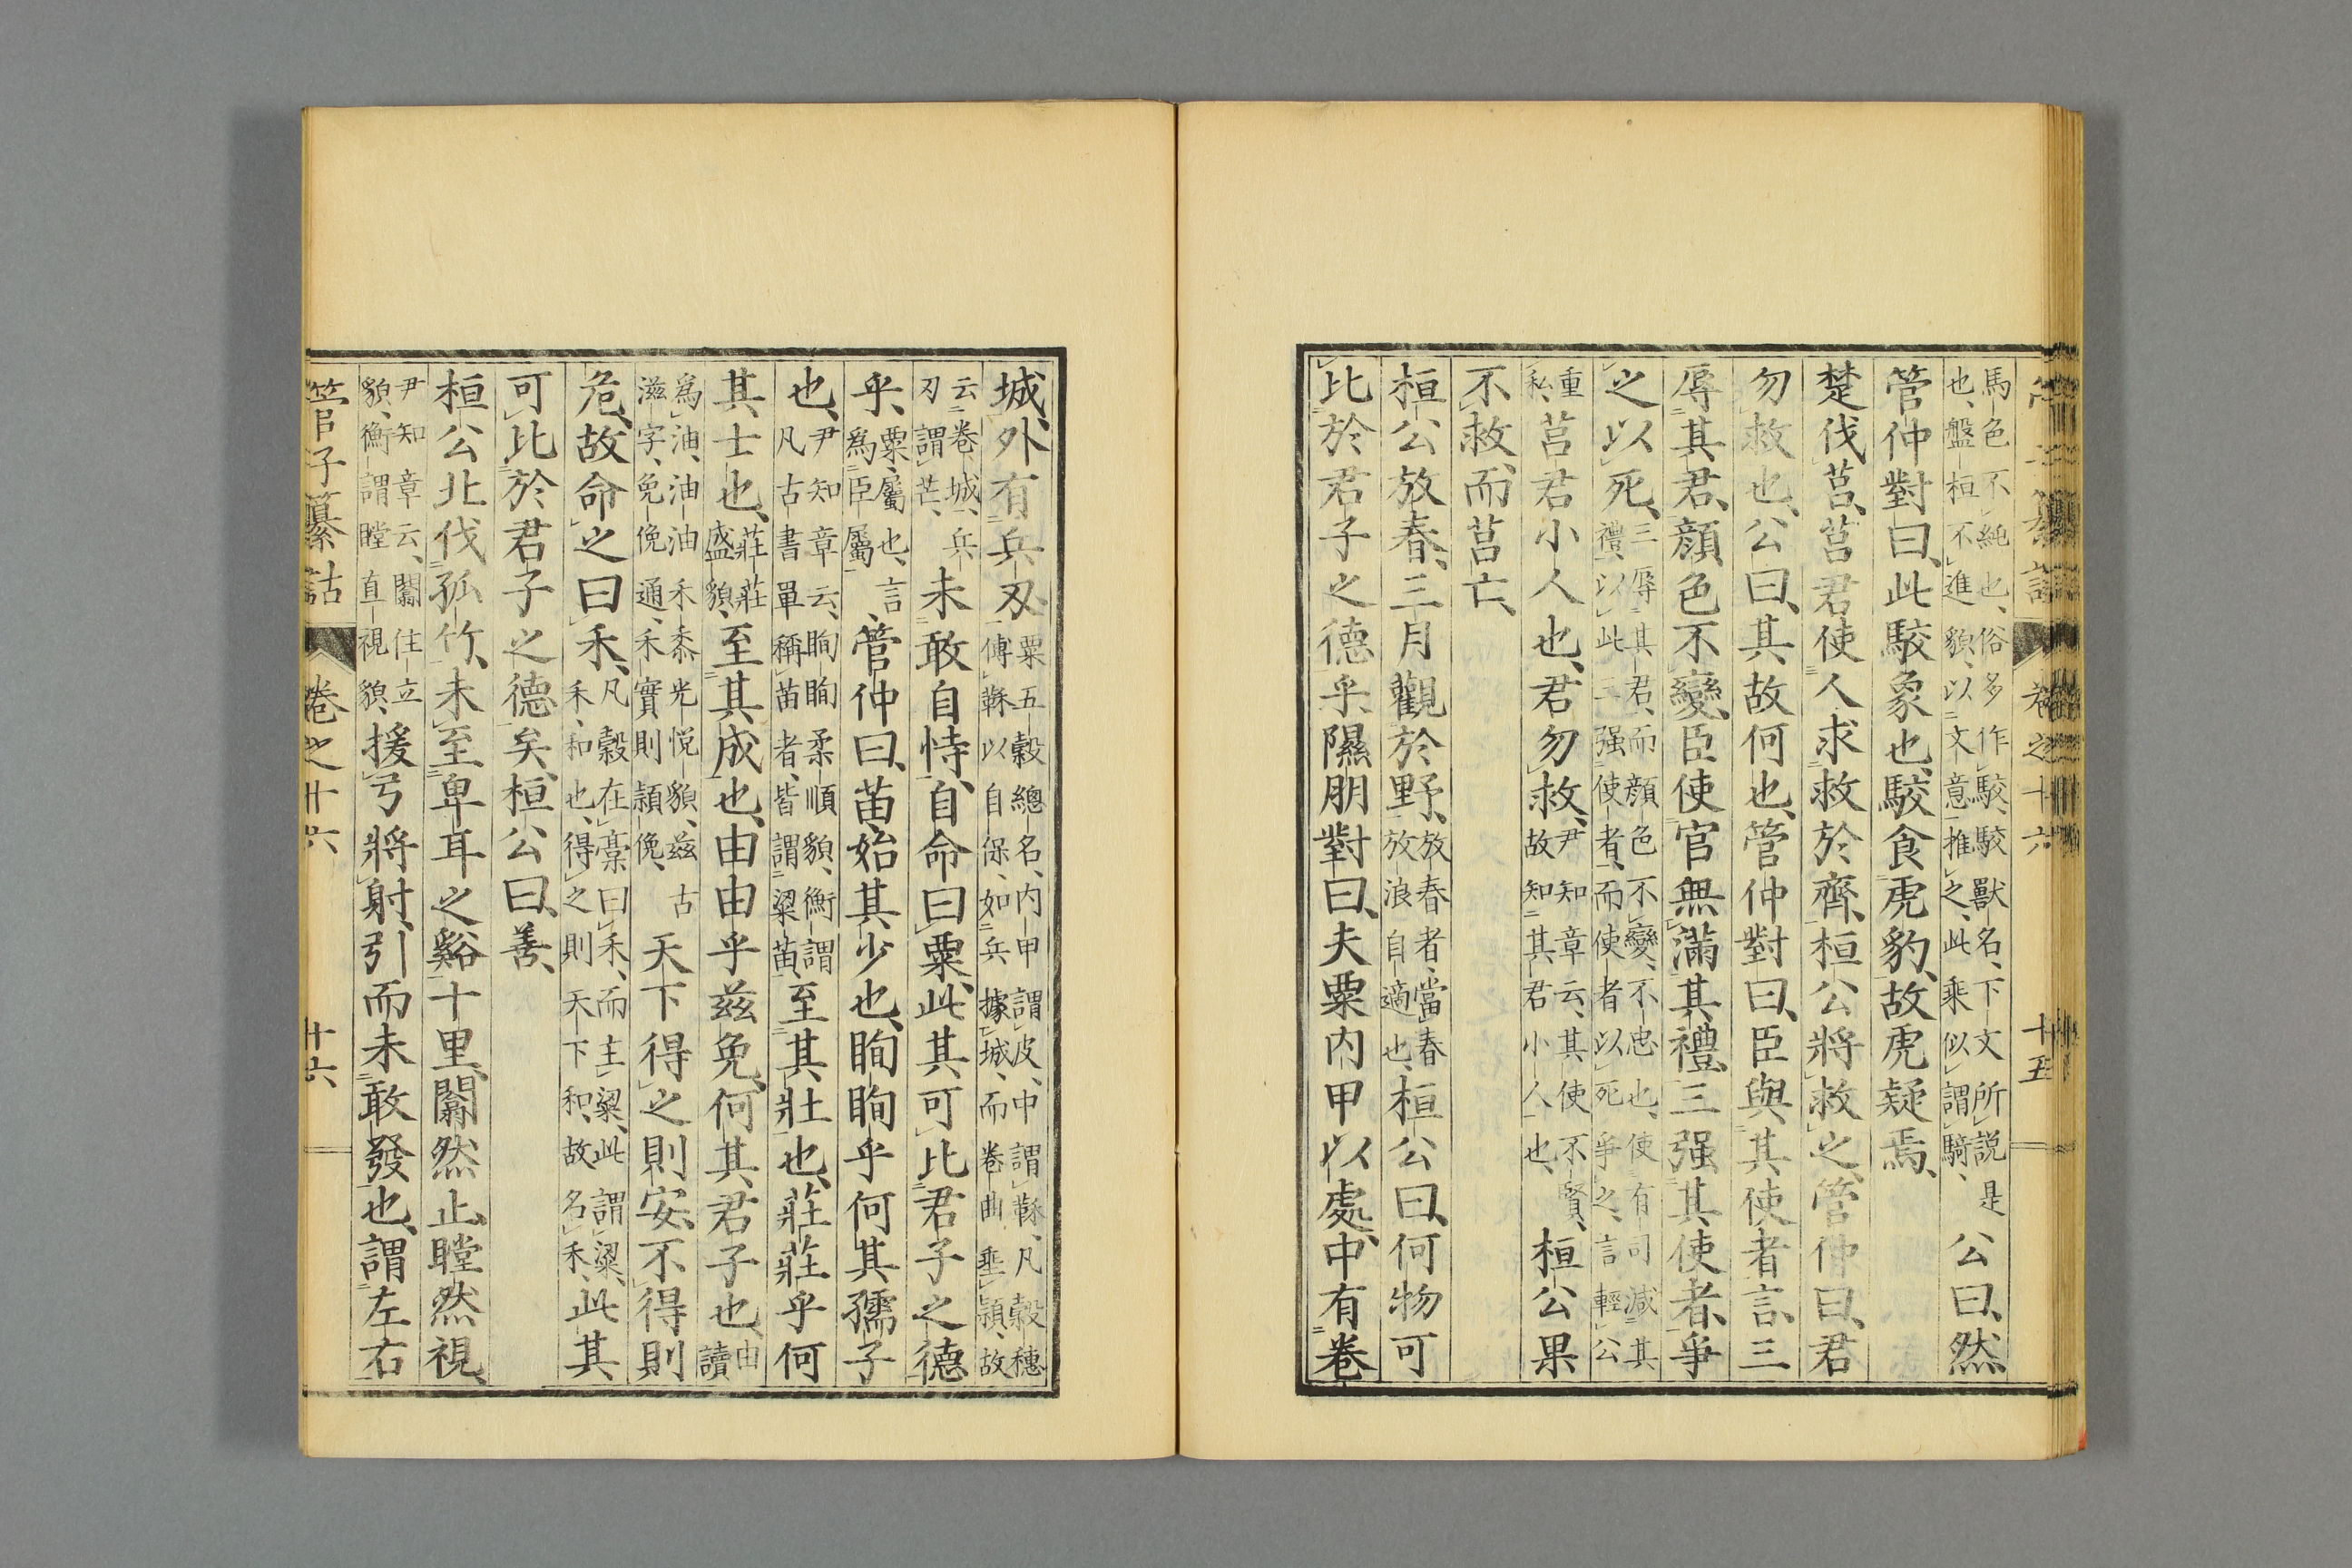 馬色不純也、俗多作駮、駮獸名、下文所説是
也、盤桓不進貌、以文意推之、此乘似謂騎、公曰、然
管仲對曰、此駮象也、駮食虎豹、故虎疑焉、
楚伐莒、莒君使人求救於齊、桓公將救之、管仲曰、君
勿救也、公曰、其故何也、管仲對曰、臣與其使者言、三
辱其君、顔色不變、臣使官無滿其禮、三强其使者、爭
之以死、三辱其君、而顔色不變、不忠也、使有司減其
禮、以此三强使者、而使者以死爭之、言輕公
重私、莒君小人也、君勿救、尹知章云、其使不賢、
故知其君小人也、桓公果
不救、而莒亡、
桓公放春、三月觀於野、放春者、當春
放浪自適也、桓公曰、何物可
比於君子之德乎、隰朋對曰、夫粟内甲以處、中有卷
管子纂詁 卷之十六 十五
城、外有兵刃、粟五穀總名、内甲謂皮、中謂稃、凡穀穗
傅稃以自保、如兵據城、而卷曲垂穎、故
云卷城、兵
刃謂芒、未敢自恃、自命曰粟、此其可比君子之德
乎、粟、屬也、言
爲臣屬、管仲曰、苗始其少也、眴眴乎何其孺子
也、尹知章云、眴眴柔順貌、衡謂
凡古書單稱苗者、皆謂粱苗、至其壯也、莊莊乎何
其士也、莊莊
盛貌、至其成也、由由乎茲免、何其君子也、由
讀
爲油、油油禾黍光悦貌、茲古
滋字、免俛通、禾實則穎俛、天下得之則安、不得則
危、故命之曰禾、凡穀在稾曰禾、而主粱、此謂粱、
禾、和也、得之則天下和、故名禾、此其
可比於君子之德矣、桓公曰、善、
桓公北伐孤竹、未至卑耳之谿十里、闟然止、瞠然視、
尹知章云、闟住立
貌、衡謂瞠直視貌、援弓將射、引而未敢發也、謂左右
管子纂詁 卷之十六 十六